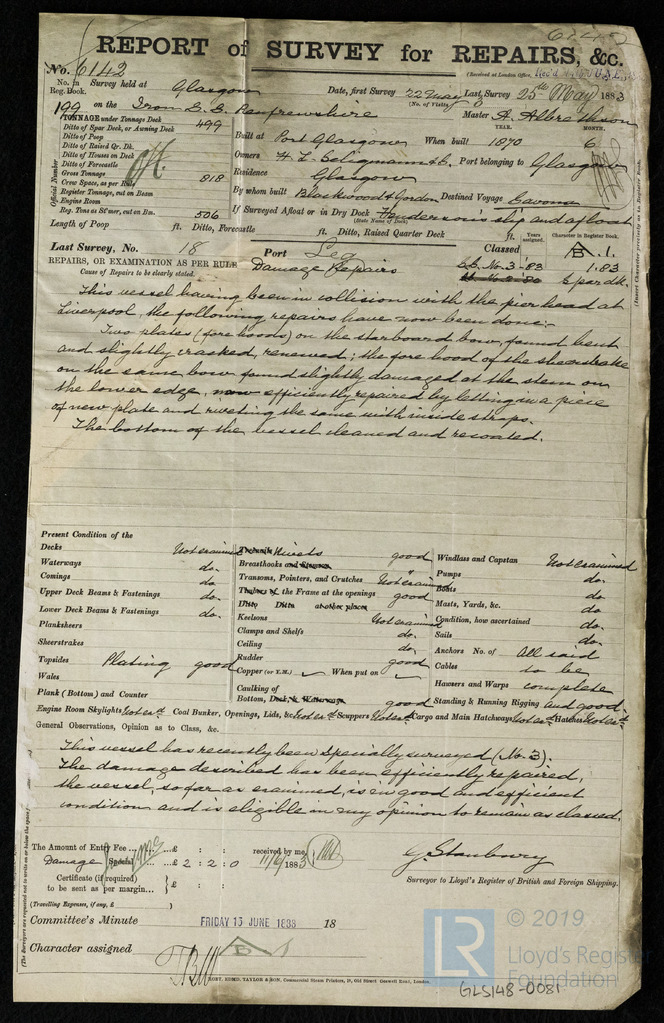 REPORT of SURVEY for REPAIRS, &c.
No. 6142
(Received at London Office,
No. in Reg. Book. Survey held at Glasgow Date, first Survey 22 May Last Survey 25th May 1883
(No. of Visits)
199 on the Iron S.S. Renfrewshire Master A. Albrethson
TONNAGE under Tonnage Deck 499
YEAR. MONTH.
Ditto of Spar Deck, or Awning Deck
Built at Port Glasgow When built 1870 6
Ditto of Poop
Ditto of Raised Qr. Dk.
Owners H. L. Seligmann & Co. Port belonging to Glasgow
Ditto of Houses on Deck
Ditto of Forecastle
Residence Glasgow
Gross Tonnage 818
Crew Space, as per Rule
By whom built Blackwood & Gordon Destined Voyage Savona
Register Tonnage, cut on Beam
Engine Room
If Surveyed Afloat or in Dry Dock Henderson's slip and afloat
(State Name of Dock)
Reg. Tons as St'mer, cut on Bm. 506
Official Number
Length of Poop ft. Ditto, Forecastle ft. Ditto, Raised Quarter Deck ft.
Years assigned. Character in Register Book.
(Insert Character precisely as in Register Book.)
Last Survey, No. 18 Port Classed A.1.
REPAIRS, OR EXAMINATION AS PER RULE Damage Repairs S.S. No. 3-'83 1,83
Cause of Repairs to be clearly stated.
This vessel having been in collision with the pier head at
Liverpool, the following repairs have now been done:-
Two plates (fore hoods) on the starboard bow, found bent
and slightly cracked, renewed; the fore hood of the sheerstrake
on the same bow found slightly damaged at the stem on
the lower edge, now efficiently repaired by letting in a piece
of new plate and riveting the same with inside straps.
The bottom of the vessel cleaned and recoated.
Present Condition of the
Decks Not examined
Waterways do.
Comings do.
Upper Deck Beams & Fastenings do.
Lower Deck Beams & Fastenings do.
Planksheers
Sheerstrakes
Topsides Plating good
Wales
Plank (Bottom) and Counter
Treenails Rivets good
Breasthooks and Stemson
Transoms, Pointers, and Crutches Not examined
Timbers of the Frame at the openings good
Ditto Ditto at other places
Keelsons Not examined
Clamps and Shelfs do.
Ceiling do.
Rudder good
Copper (or Y.M.) When put on
Caulking of
Bottom, Deck, & Waterways good
Windlass and Capstan Not examined
Pumps do.
Boats do.
Masts, Yards, &c. do.
Condition, how ascertained do.
Sails do.
Anchors No. of All said
Cables to be
Hawsers and Warps complete
Standing & Running Rigging and good.
Engine Room Skylights Not exd. Coal Bunker, Openings, Lids, &c. Not exd. Scuppers Not exd. Cargo and Main Hatchways Not exd. Hatches Not exd.
General Observations, Opinion as to Class, &c.
This vessel has recently been specially surveyed (No. 3).
The damage described has been efficiently repaired,
the vessel, so far as examined, is in good and efficient
condition and is eligible in my opinion to remain as classed.
The Amount of Entry Fee ... £ : : received by me,
Damage Special £ 2 : 2 : 0 11/6/1883
Certificate (if required) to be sent as per margin... £ : :
(Travelling Expenses, if any, £ )
G. Stanbury
Surveyor to Lloyd's Register of British and Foreign Shipping.
(The Surveyors are requested not to write on or below the space
Committee's Minute FRIDAY 15 JUNE 1883 18
Character assigned A 1
ROBT. EDMD. TAYLOR & SON, Commercial Steam Printers, 19, Old Street, Goswell Road, London.
LR
© 2019
Lloyd's Register
Foundation
GLS148-0081